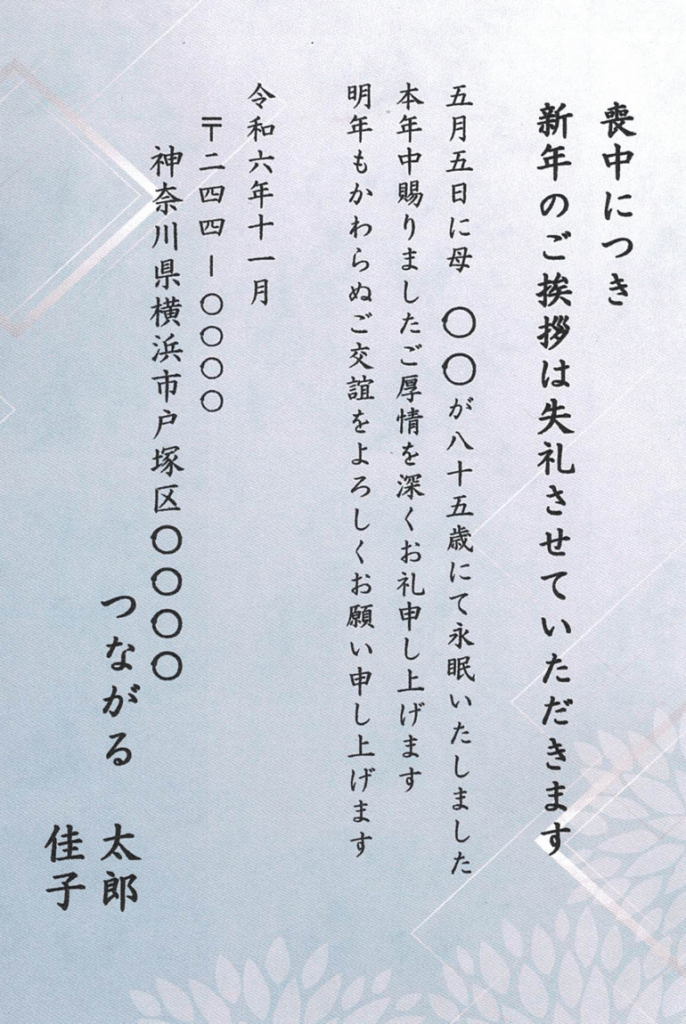 喪中につき
新年のご挨拶は失礼させていただきます
五月五日に母　〇〇が八十五歳にて永眠いたしました
本年中賜りましたご厚情を深くお礼申し上げます
明年もかわらぬご交誼をよろしくお願い申し上げます
令和六年十一月
〒二四四ー〇〇〇〇
神奈川県横浜市戸塚区〇〇〇〇
つながる　太郎
佳子